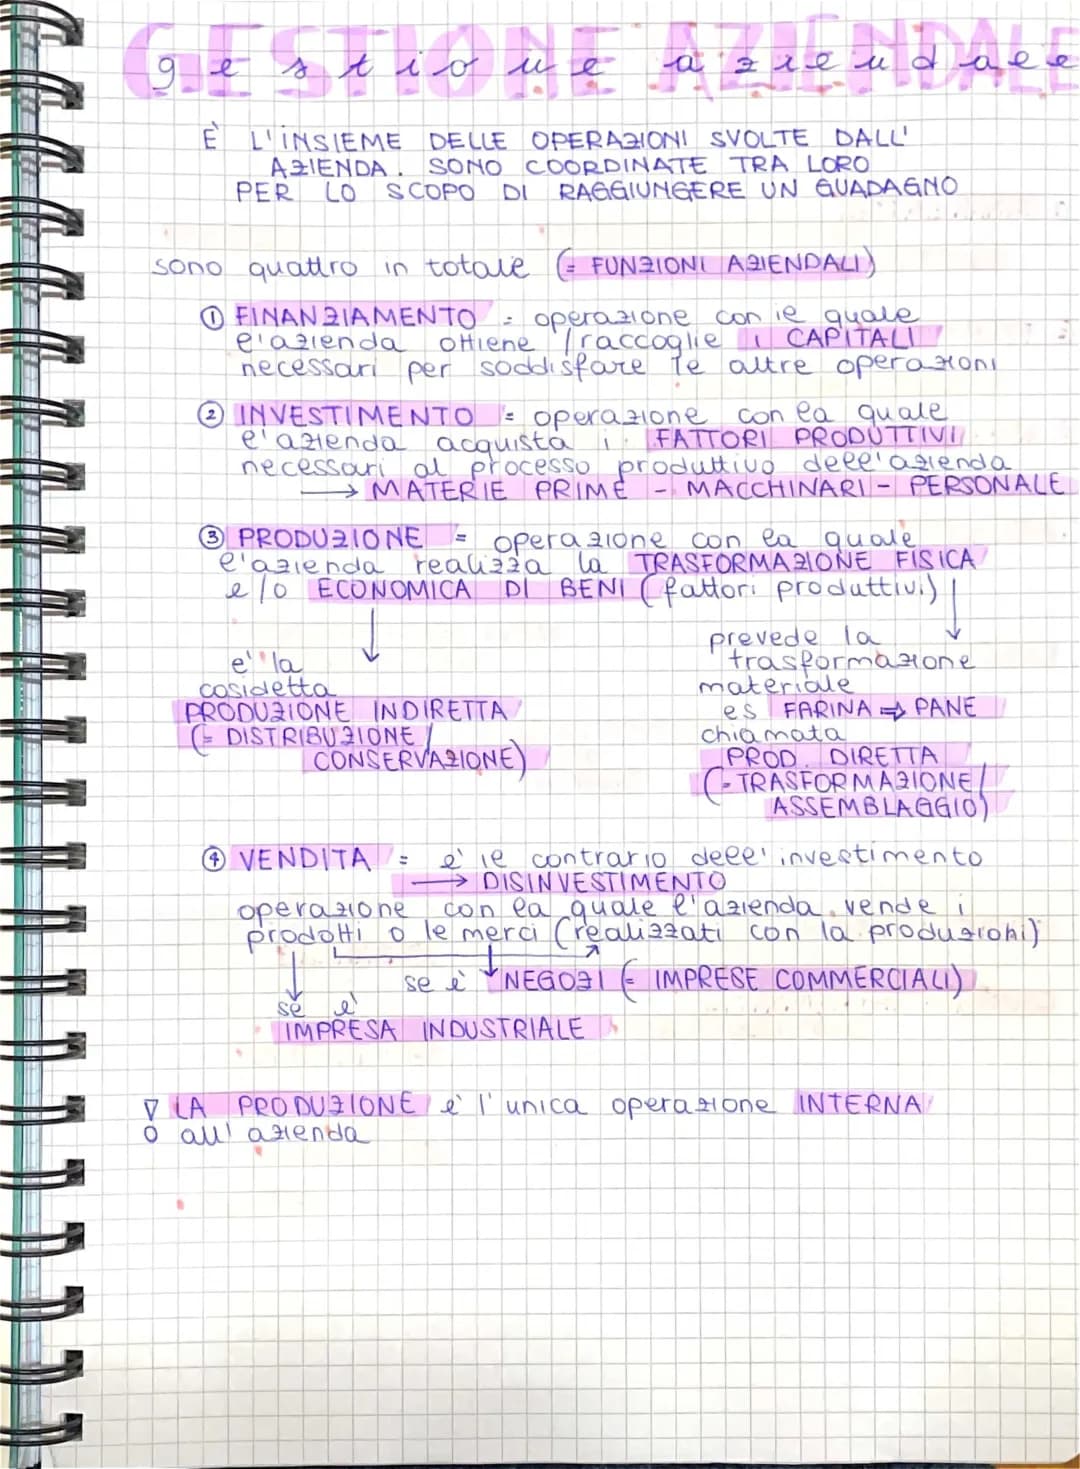 GESTIONE AZIENDALE
gestione aziendale
È L'INSIEME DELLE OPERAZIONI SVOLTE DALL'
AZIENDA. SONO COORDINATE TRA LORO
PER LO SCOPO DI RAGGIUNGERE UN GUADAGNO
sono quattro in totale (= FUNZIONI AZIENDALI)
① FINANZIAMENTO = operazione con le quale
l'azienda ottiene / raccoglie i CAPITALI
necessari per soddisfare le altre operazioni
② INVESTIMENTO = operazione con la quale
l'azienda acquista i FATTORI PRODUTTIVI
necessari al processo produttivo dell'azienda
→ MATERIE PRIME - MACCHINARI - PERSONALE
③ PRODUZIONE = operazione con la quale
l'azienda realizza la TRASFORMAZIONE FISICA
e/o ECONOMICA DI BENI (fattori produttivi)
e' la
cosidetta
PRODUZIONE INDIRETTA
(= DISTRIBUZIONE /
CONSERVAZIONE)
prevede la
trasformazione
materiale
es FARINA ⇒ PANE
chiamata
PROD. DIRETTA
(= TRASFORMAZIONE /
ASSEMBLAGGIO)
④ VENDITA = e' il contrario dell'investimento
→ DISINVESTIMENTO
operazione con la quale l'azienda vende i
prodotti o le merci (realizzati con la produzioni)
se è NEGOZI (= IMPRESE COMMERCIALI)
se e'
IMPRESA INDUSTRIALE
LA PRODUZIONE e' l'unica operazione INTERNA
all'azienda